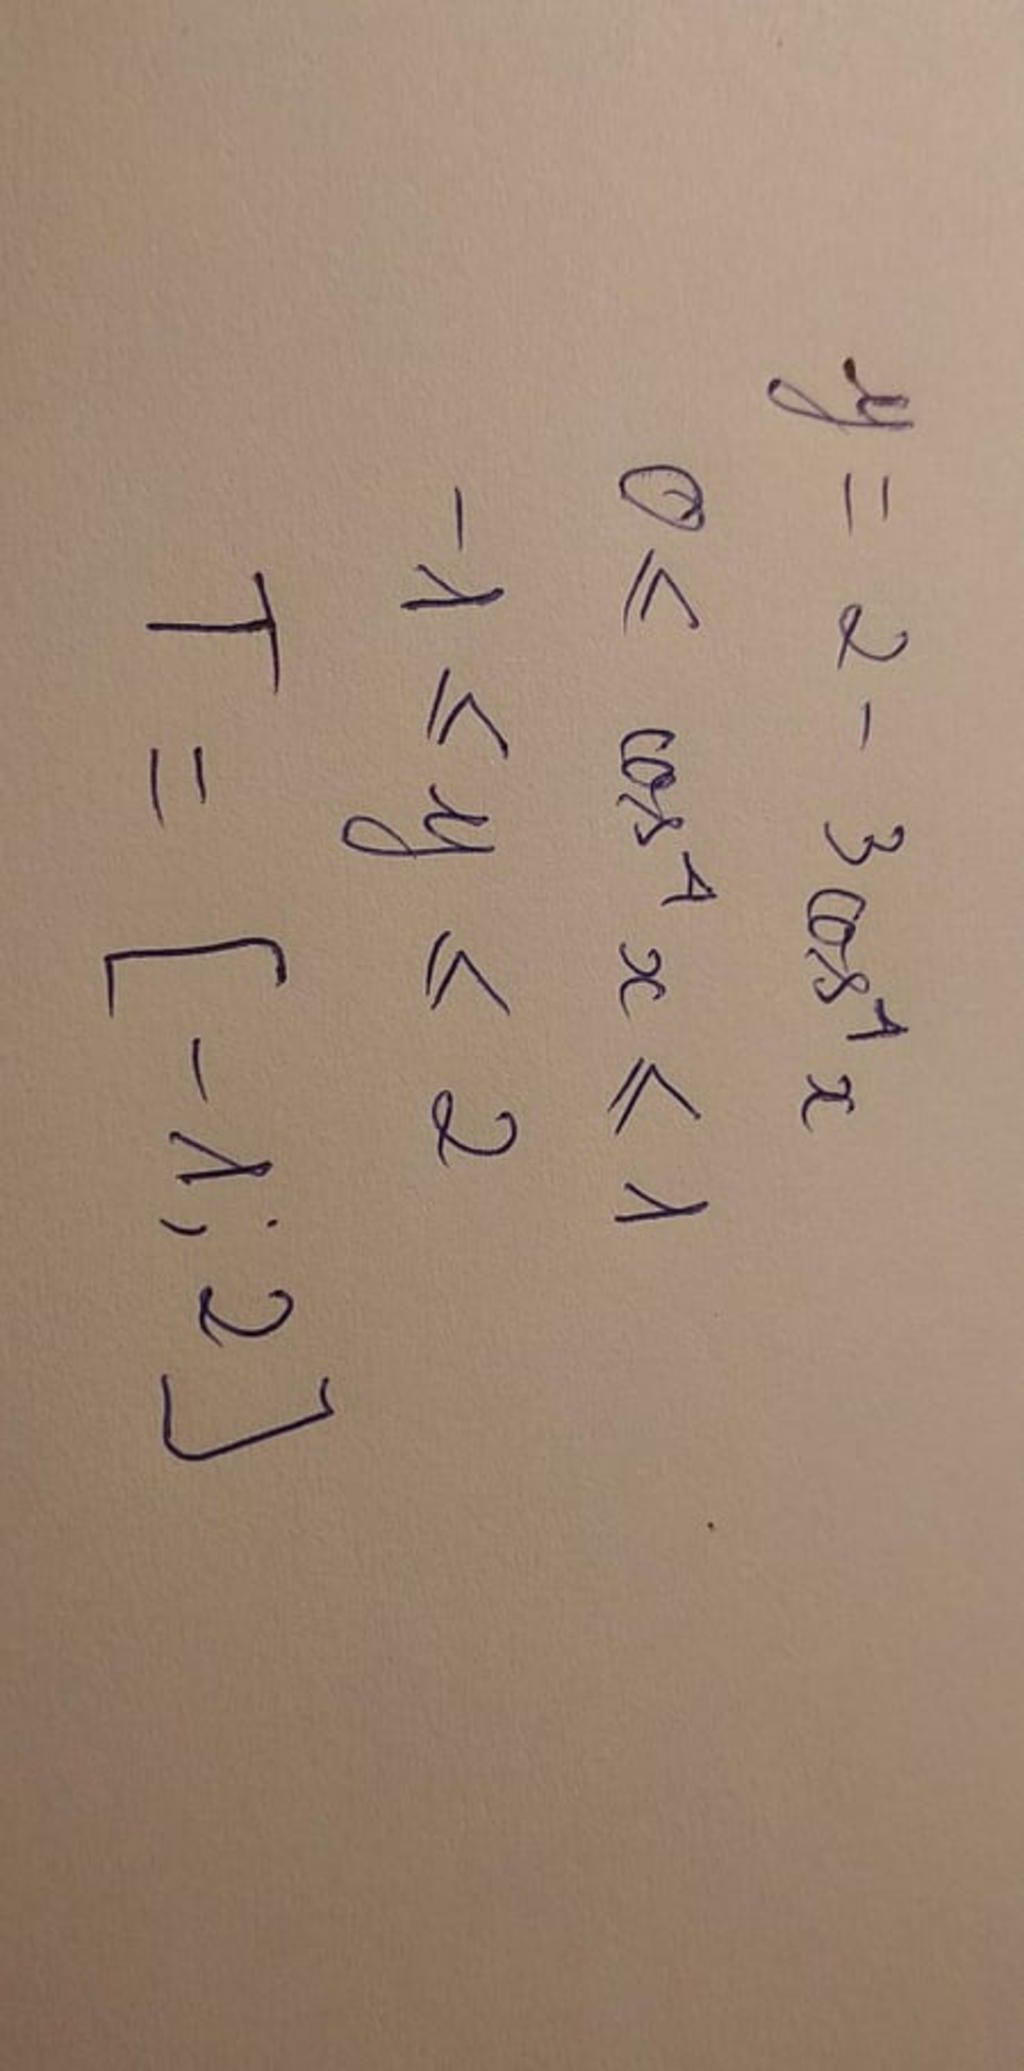 y = 2 - 3cos⁴x
0 ≤ cos⁴x ≤ 1
-1 ≤ y ≤ 2
T = [-1; 2]